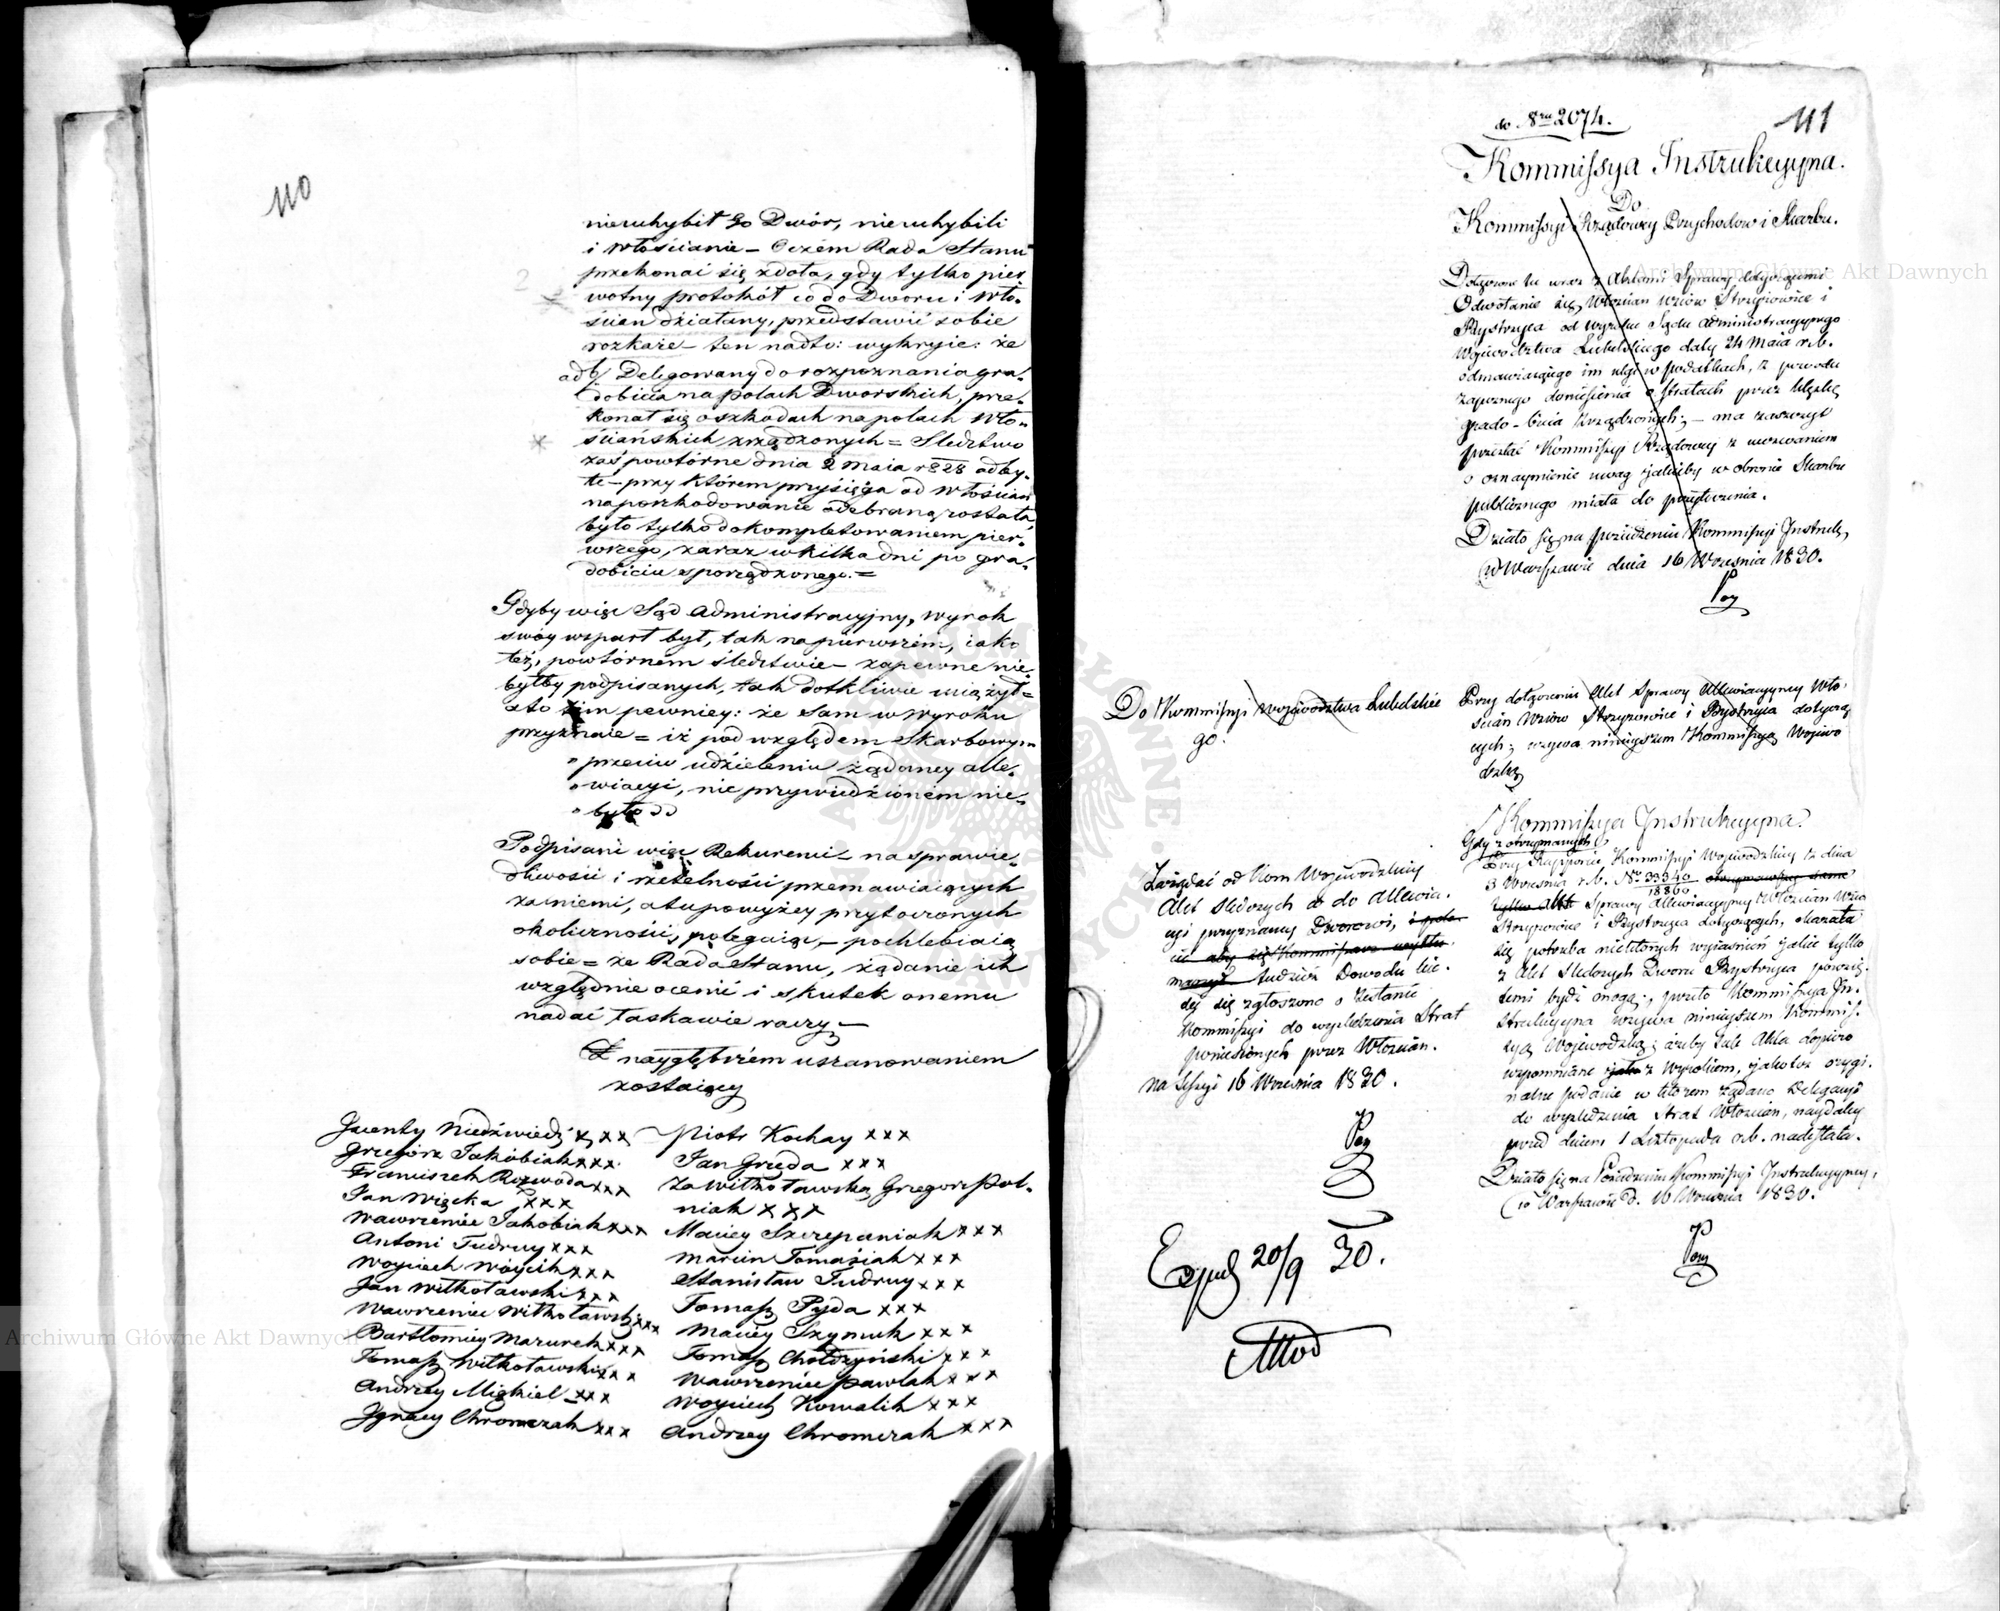 110
nieuchybił go Dwór, nieuchybili
i Włościanie – Oczém Rada Stanu
przekonać się zdoła, gdy tylko pier
wotny protokół co do Dworu i Wło-
ścian działany, przedstawić sobie
rozkaże – ten nadto: wykryie: że
ad b/ Delegowany do rozpoznania gra-
dobicia na polach Dworskich, prze-
konał się o szkodach na polach Wło-
ściańskich zrządzonych = Sledztwo
zaś powtórne dnia 2 Maia r 828 odby-
te – przy którém przysięga od Włościan
na poszkodowanie odebraną została,
było tylko dokompletowaniem pier-
wszego, zaraz w kilka dni po gra-
dobiciu sporządzonego. =
Gdyby więc Sąd Administracyjny, wyrok
swóy wsparł był, tak na pierwszém, iako
też, powtórnem śledztwie – zapewne nie
byłby podpisanych, tak dotkliwie uciążył =
a to tim pewniey: że Sam w Wyroku
przyznaie = iż pod względem Skarbowym
" przeciw udzieleniu żądaney alle-
" wiacyi, nic przywiedzioném nie-
" było
Podpisani więc Rekurenci – na sprawie-
dliwości i rzetelności przemawiaiących
za niemi, a tu powyżey przytoczonych
okoliczności, polegaiąc, – pochlebiaią
sobie = że Rada Stanu, żądanie ich
względnie ocenić i skutek onemu
nadać łaskawie raczy –
Z naygłębszém uszanowaniem
zostaiący
Jacenty Niedźwiedź xxx Piotr Kochay xxx
Grzegorz Jakóbiak xxx Jan Gręda xxx
Franciszek Rozwoda xxx Za Witkoławską Grzegorz Pol-
Jan Więcka xxx niak xxx
Wawrzeniec Jakobiak xxx Maciey Szczepaniak xxx
Antoni Tudruy xxx Marcin Tomasiak xxx
Woyciech Wóycik xxx Stanisław Tudruy xxx
Jan Witkoławski xxx Tomasz Pyda xxx
Wawrzeniec Witkoławski xxx Maciey Szymuk xxx
Bartłomiey Mazurek xxx Tomasz Chołdzyński xxx
Tomasz Witkoławski xxx Wawrzeniec Pawlak xxx
Andrzey Miękiel xxx Woyciech Kowalik xxx
Jgnacy Chromczak xxx Andrzey Chromczak xxx
111
do Nru 2074.
Kommissya Instrukcyyna.
Do
Kommissyi Rządowey Przychodow i Skarbu.
Dołączone tu wraz z Aktami Sprawy dotyczącemi
Odwołanie się Włoscian Wsiów Strzyżowice i
Bystrzyca od wyroku Sądu Administracyynego
Województwa Lubelskiego daty 24 Maia r.b.
odmawiaiącego im ulgi w podatkach, z powodu
zapoznego doniesienia o stratach przez klęskę
grado-bicia zrządzonych; – ma zaszczyt
przesłać Kommissyi Rządowey z wezwaniem
o oznaymienie uwag jakieby w obronie Skarbu
publicznego miała do przytoczenia.
Działo się na posiedzeniu Kommissyi Instruk.
w Warszawie dnia 16 Września 1830.
Do Kommissyi Województwa Lubelskie
go.
Przy dołączeniu Akt Sprawy Allewiacyyney Wło-
ścian Wsiów Strzyzowice i Bystrzyca dotyczą
cych; wzywa ninieyszem Kommissyą Woiewo
dzką
Kommissya Instrukcyyna.
Gdy z otrzymanych
Przy Rapporcie Kommissyi Woiewodzkiey z dnia
3 Września r.b. No 33540/18860 otrzymawszy same
tylko Akt Sprawy Allewiacyyney Włoscian Wsio
Strzyzowice i Bystrzyca dotyczących, okazała
się potrzeba niektórych wyiaśnień jakie tylko
z Akt śledczych Dworu Bystrzyca powzię-
temi bydź mogą; przeto Kommissya In-
strukcyyna wzywa ninieyszem Kommis-
syą Woiewodzką; ażeby Akta dopiero
wspomniane z Wyrokiem, jakotez orygi-
nalne podanie w którem żądano Delegacyi
do wyśledzenia Strat Włoscian, naydaley
przed dniem 1 Listopada r.b. nadesłała.
Działo się na Posiedzeniu Kommissyi Instrukcyyney,
w Warszawie d. 16 Września 1830.
Zażądać od Kom Woiewodzkiey
Akt śledczych co do Allewia-
cyi przyznaney Dworowi,
tudzież Dowodu kie-
dy się zgłoszono o Zesłanie
Kommissyi do wyśledzenia Strat
poniesionych przez Włoscian.
Na Sessyi 16 Września 1830.
Exped 20/9 30.